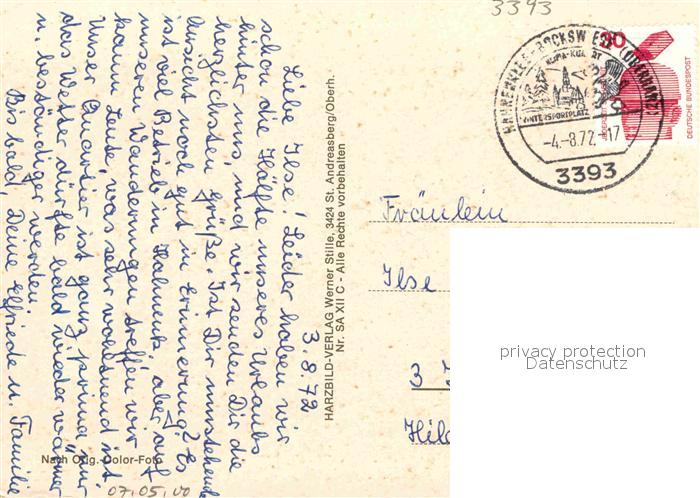 3393
3.8.72
Liebe Ilse! Leider haben wir
schon die Hälfte unseres Urlaubs
hinter uns, und wir senden Dir die
herzlichsten Grüße. Ist Dir umstehende
Ansicht noch gut in Erinnerung? Es
ist viel Betrieb in Hahnenkl., aber auf
unseren Wanderungen treffen wir
kaum Leute, was sehr wohltuend ist.
Unser Quartier ist ganz prima, nur
das Wetter dürfte bald wieder wärmer
u. beständiger werden.
Bis bald, Deine Elfriede u. Familie
HARZBILD-VERLAG Werner Stille, 3424 St. Andreasberg/Oberh.
Nr. SA XII C - Alle Rechte vorbehalten
Nach Orig. Color-Foto
07.05.00
HAHNENKLEE-BOCKSWIESE (OBERHARZ)
WINTERSPORTPLATZ
-4.-8.72.-17
3393
DEUTSCHE BUNDESPOST
Fräulein
Ilse
3
Hild
privacy protection
Datenschutz